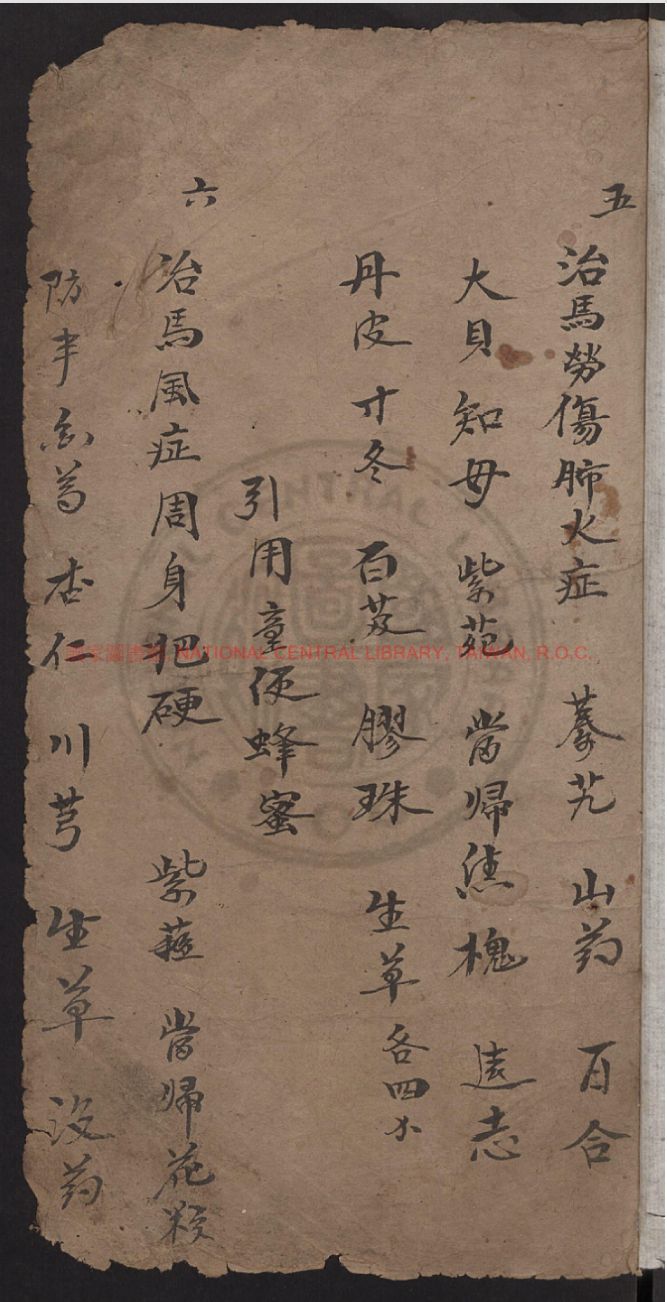 五
治馬勞傷肺火症 蓁艽 山药 百合
大貝 知母 紫菀 當歸 焦槐 遠志
丹皮 寸冬 百芨 膠珠 生草 各四个
引用童便蜂蜜
六
治馬風症周身把硬 紫蘇 當歸 花粉
防丰 杏仁 川芎 生草 没药
國家圖書館 NATIONAL CENTRAL LIBRARY, TAIWAN, R.O.C.